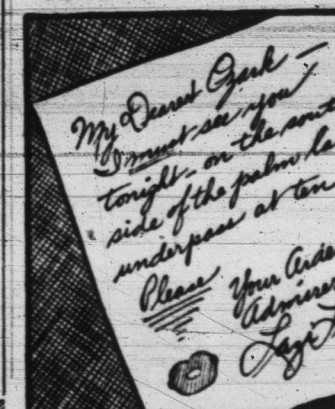 My Dearest Ozark —
I must see you
tonight - on the sout
side of the palm la
underpass at ten
Please
Your Arde
Admirer